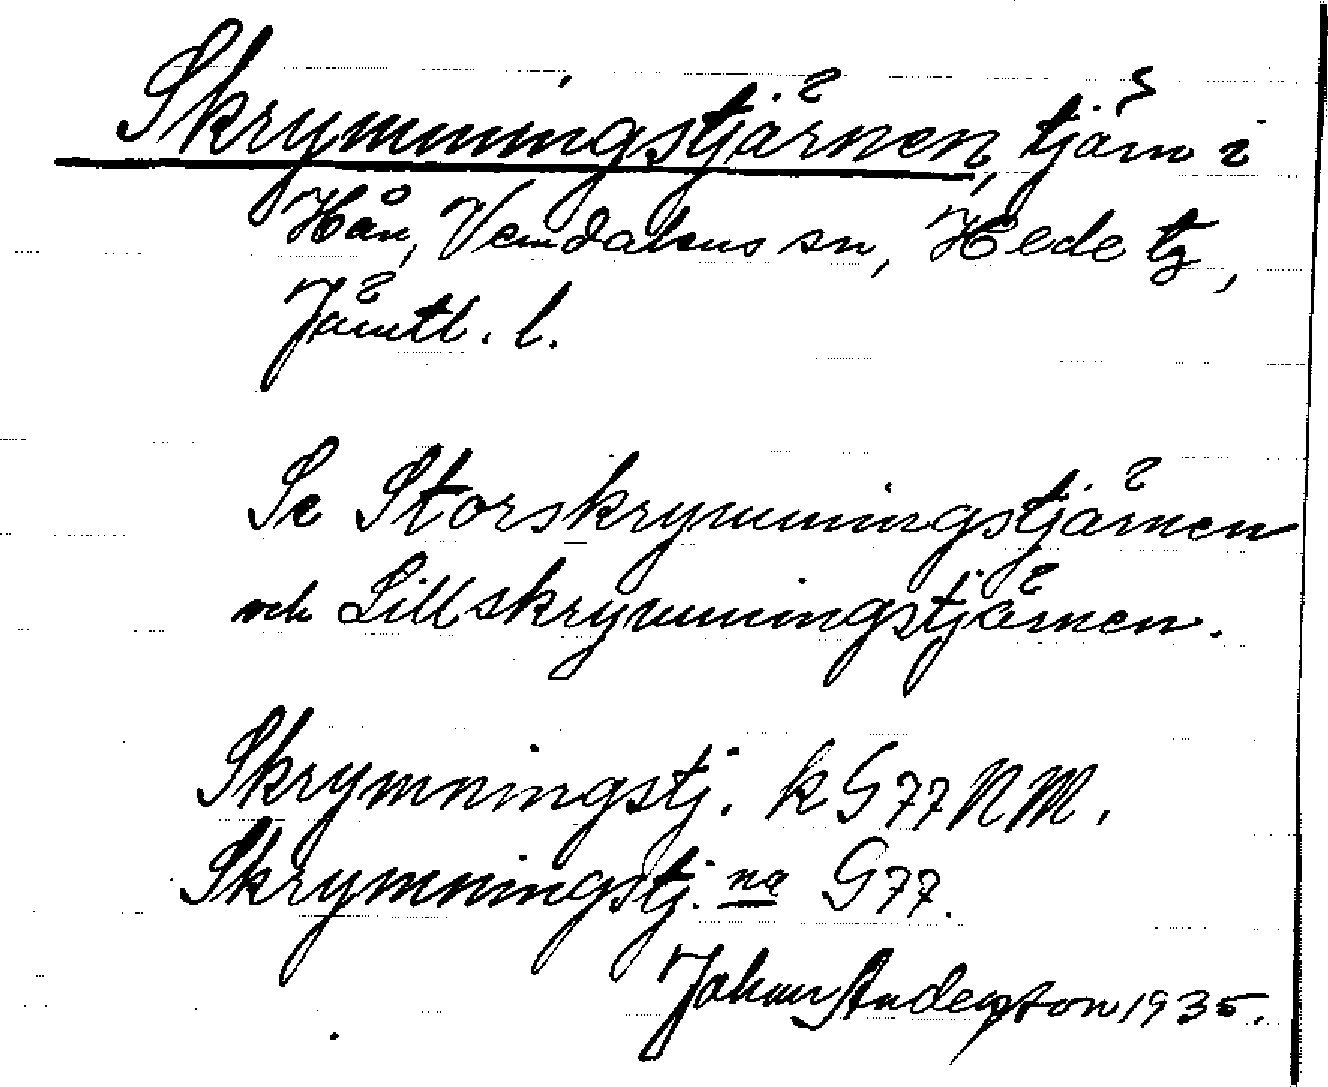 Skrymningstjärnen, tjärn i
Hån, Vemdalens sn, Hede tg,
Jämtl. l.
Se Storskrymningstjärnen
och Lillskrymningstjärnen.
Skrymningstj. k G77 NM.
Skrymningstj. na G77.
Johan Anderson 1935.